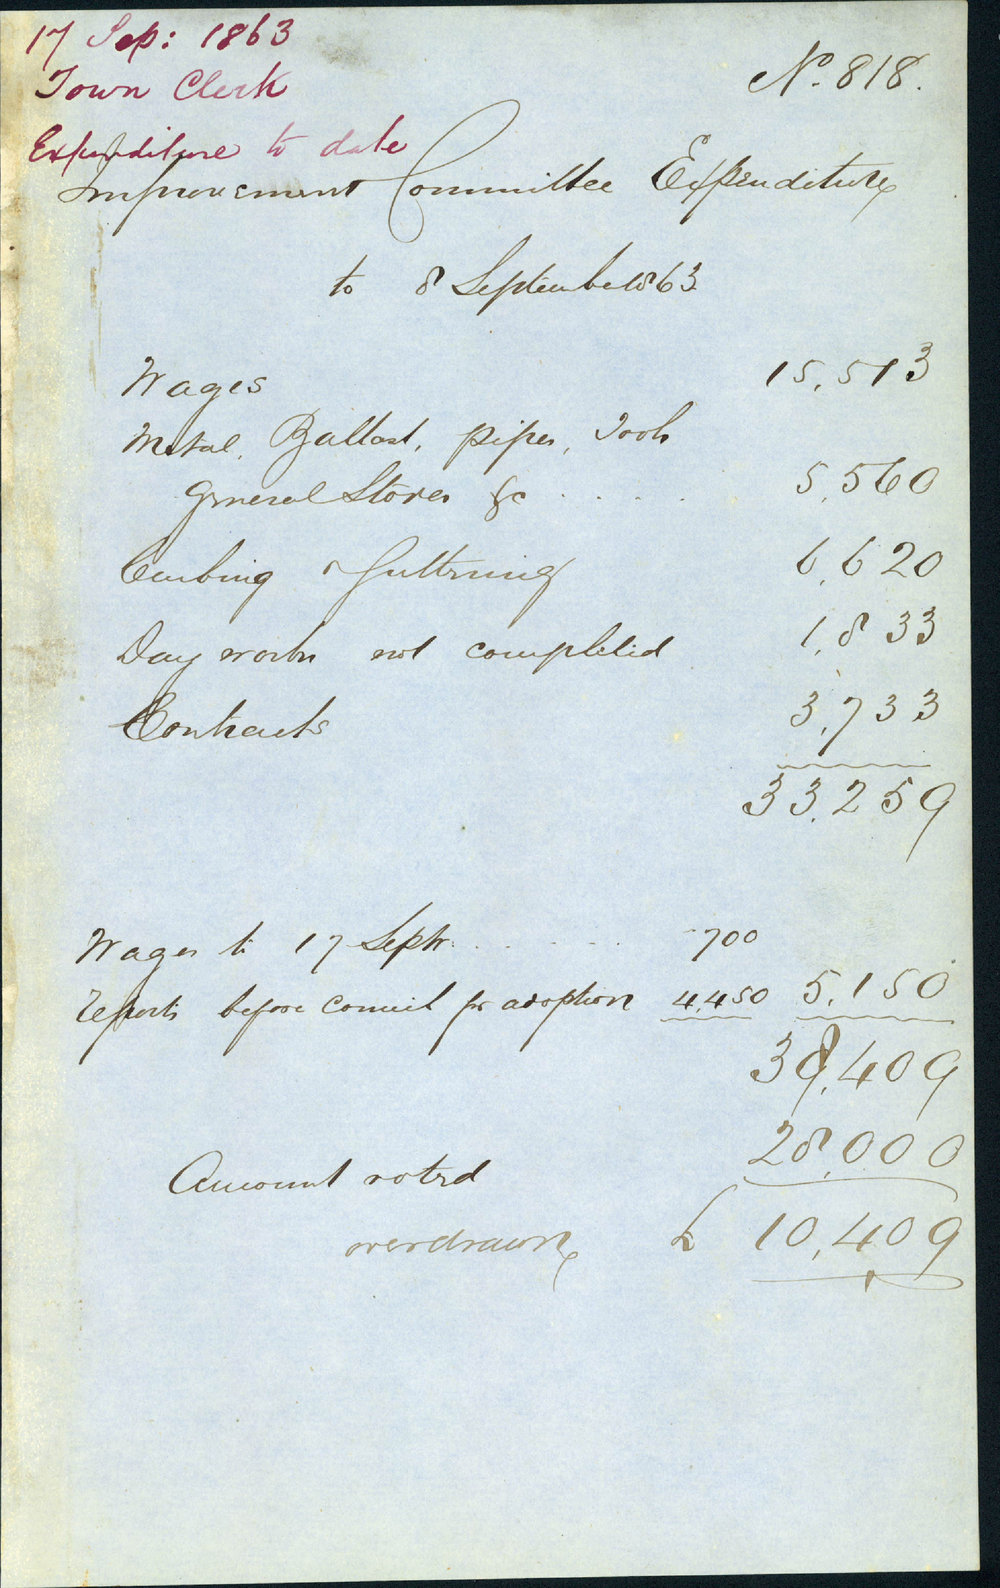 17 Sep: 1863
Town Clerk
Expenditure to date
No. 818.
Improvement Committee Expenditure
to 8 September 1863
Wages 15,513
Metal, Ballast, pipes, Tools
General Stores &c . . . . . 5,560
Curbing & Guttering 6,620
Day works not completed 1,833
Contracts 3,733
33,259
Wages to 17 Septr. . . . . . 700
Reports before Council for adoption 4,450 5,150
38,409
Amount voted 28,000
overdrawn £ 10,409